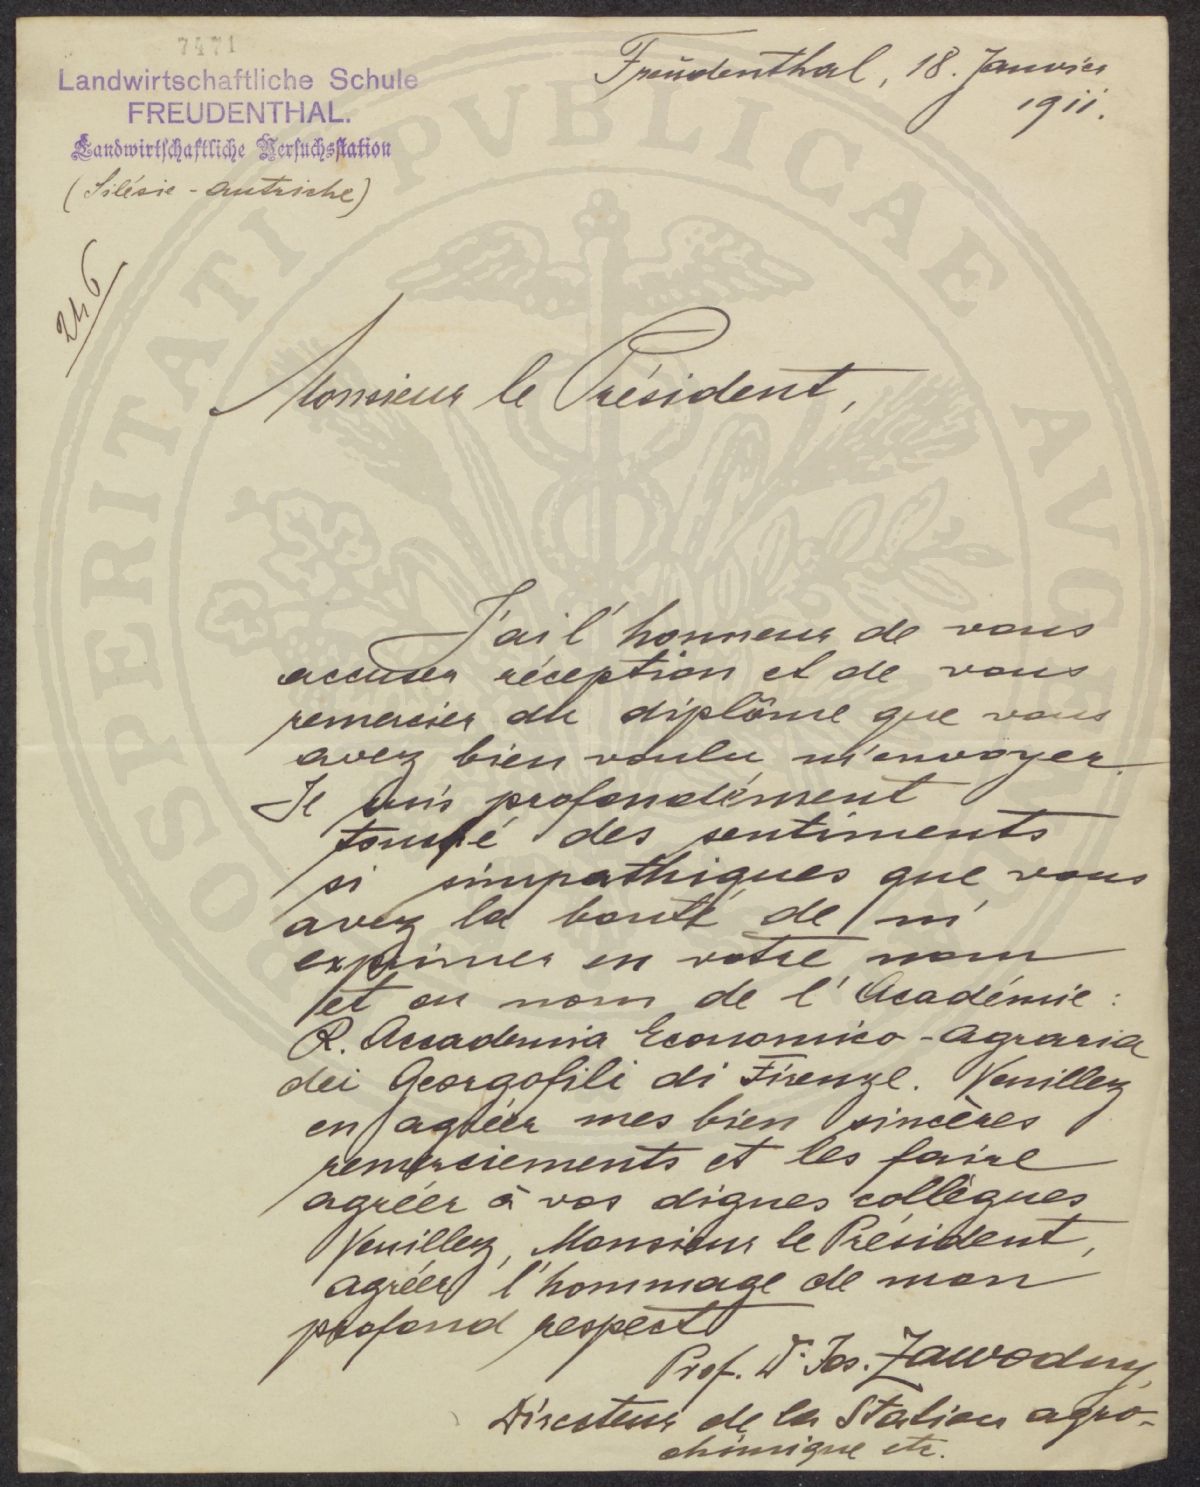 7471
Landwirtschaftliche Schule
FREUDENTHAL.
Landwirtschaftliche Versuchsstation
(Silésie - Autriche)
Freudenthal, 18. Janvier
1911.
246
Monsieur le Président,
J'ai l'honneur de vous
accuser réception et de vous
remercier du diplôme que vous
avez bien voulu m'envoyer.
Je suis profondément
touché des sentiments
si simpathiques que vous
avez la bonté de m'
exprimer en votre nom
et au nom de l'Académie:
R. Accademia Economico-agraria
dei Georgofili di Firenze. Veuillez
en agréer mes bien sincères
remerciements et les faire
agréer à vos dignes collègues
Veuillez, Monsieur le Président,
agréer l'hommage de mon
profond respect
Prof. Dr. Jos. Zawodny,
Directeur de la Station agro-
chimique etc.
PROSPERITATI PVBLICAE AVGENDAE